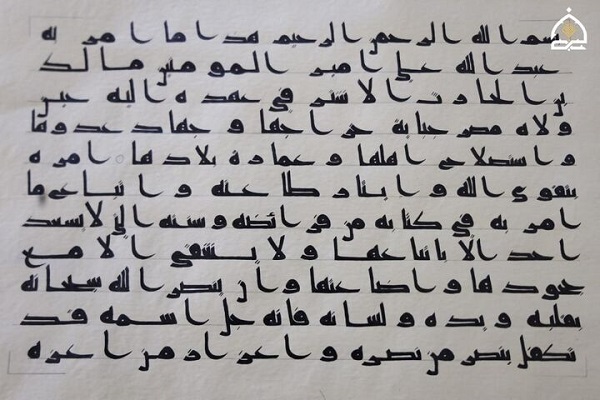 بسم الله الرحمن الرحيم هذا ما امر به
عبد الله علي امير المومنين مالك
بن الحارث الاشتر في عهده اليه حين
ولاه مصر جباية خراجها و جهاد عدوها
و استصلاح اهلها و عمارة بلادها امره
بتقوي الله و ايثار طاعته و اتباع ما
امر به في كتابه من فرائضه و سننه التي لا يسعد
احد الا باتباعها و لا يشقي الا مع
جحودها و اضاعتها و ان ينصر الله سبحانه
بقلبه و يده و لسانه فانه جل اسمه قد
تكفل بنصر من نصره و اعزاز من اعزه